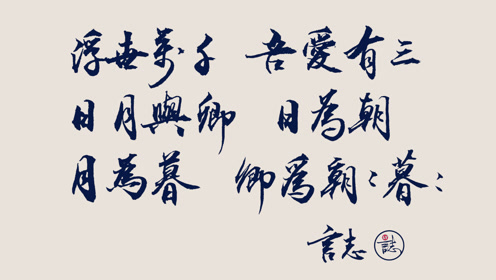 浮世萬千 吾愛有三
日月與卿 日為朝
月為暮 卿為朝〻暮〻
言志 誌